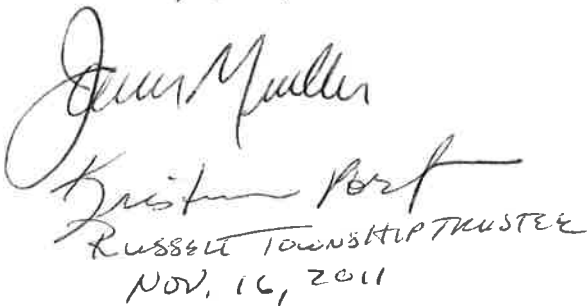 James Mueller
Kristina Port
RUSSELL TOWNSHIP TRUSTEE
NOV. 16, 2011